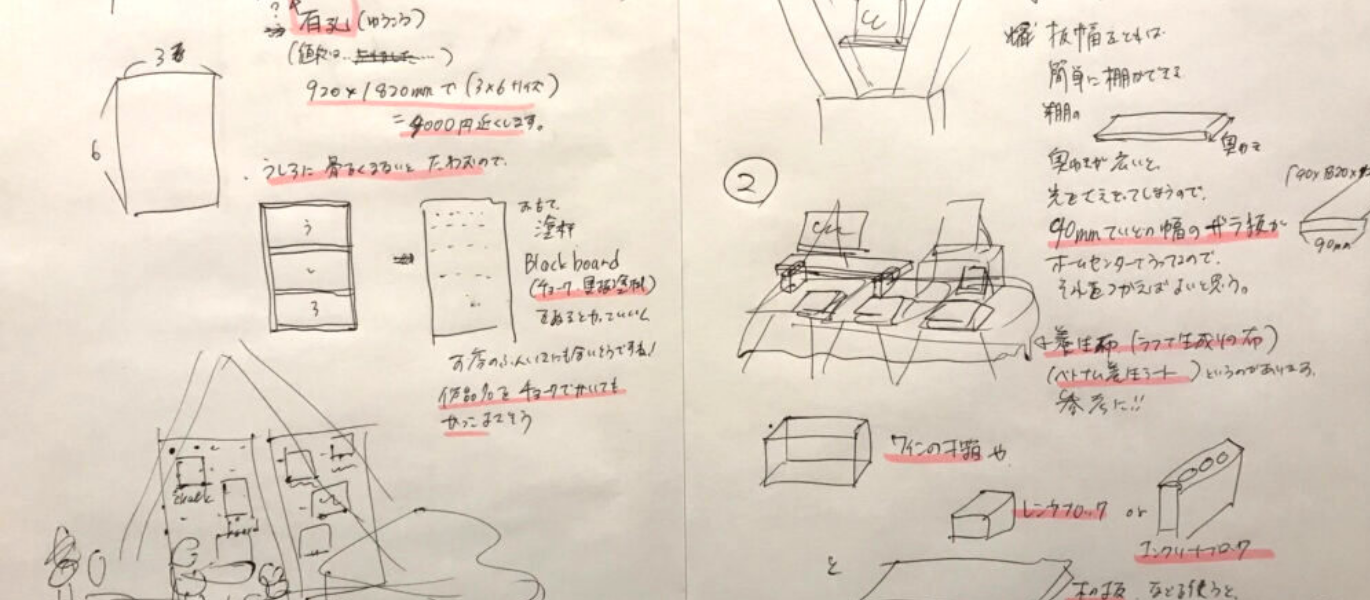 有孔(ゆうこう)
(値段は
920×1820mmで(3×6サイズ)
=4000円近くします。
3
6
うしろに骨をくまないとたわむので、
う
3
おもて
塗料
Black board
(チョーク・黒板塗料)
をぬるとかっこいいし
お店のふんいきにも合いそうですね!
作品名をチョークでかいても
かっこよさそう
chalk
board
板幅をとれば
簡単に棚ができる
棚の
奥ゆき
奥ゆきが広いと、
光をさえぎってしまうので、
90mmていどの幅のザラ板が
ホームセンターでうってるので、
それをつかえばよいと思う。
90mm
②
養生布(ラフで生成りの布)
(ベトナム養生シート)というのがあります。
参考に!!
ワインの木箱や
レンガブロック or
コンクリートブロック
と
木の板 などを使うと、